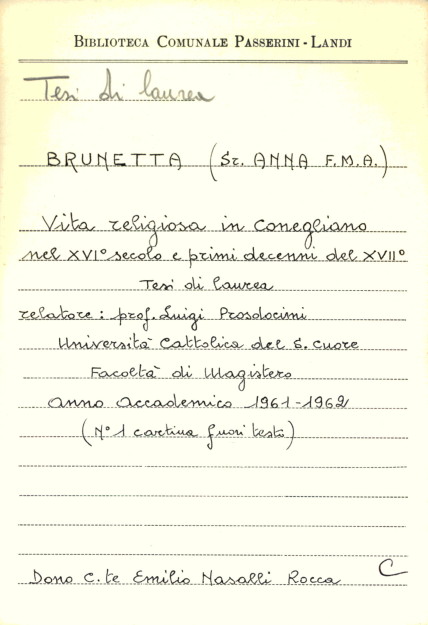 BIBLIOTECA COMUNALE PASSERINI-LANDI
Tesi di laurea
BRUNETTA (Sr. ANNA F.M.A.)
Vita religiosa in Conegliano
nel XVI° secolo e primi decenni del XVII°
Tesi di laurea
relatore: prof. Luigi Prosdocimi
Università Cattolica del S. Cuore
Facoltà di Magistero
Anno Accademico 1961-1962
(N° 1 cartina fuori testo)
Dono C.te Emilio Nasalli Rocca
C